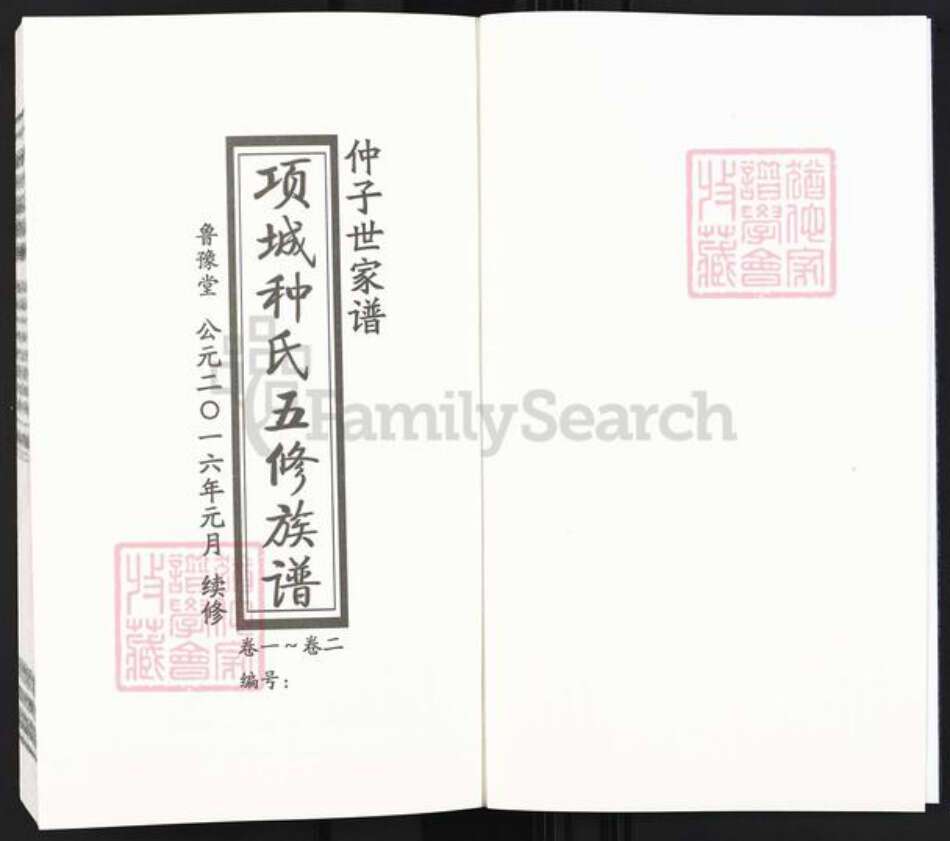 仲子世家谱
项城种氏五修族谱
鲁豫堂 公元二〇一六年元月 续修
卷一~卷二
编号：
FamilySearch
猶他家
譜學會
收藏
猶他家
譜學會
收藏